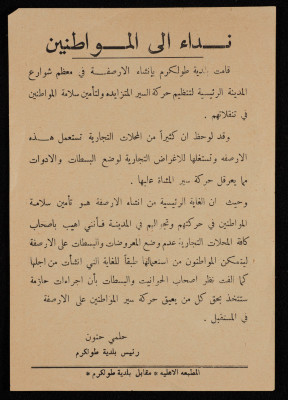 نـــداء الى المـــواطنين
قامت بلدية طولكرم بإنشاء الارصفـــة في معظم شوارع
المدينة الرئيسية لتنظيم حركة السير المتزايده ولتأمين سلامة المواطنين
في تنقلاتهم .
وقد لوحظ ان كثيراً من المحلات التجارية تستعمل هـــذه
الارصفه وتستغلها للاغراض التجارية لوضع البسطات والادوات
مما يعرقل حركة سير المشاة عليها .
وحيث ان الغاية الرئيسية من انشاء الارصفة هو تأمين سلامـة
المواطنين في حركتهم وتجوالهم في المدينـة فـأنني اهيب باصحاب
كافة المحلات التجارية عدم وضع المعروضات والبسطات على الارصفة
ليتمكن المواطنون من استعمالها طبقاً للغاية التي انشأت من اجلها
كما الفت نظر اصحاب الحوانيت والبسطات بأن اجراءات حازمة
ستتخذ بحق كل من يعيق حركة سير المواطنين على الارصفة
في المستقبل .
حلمي حنون
رئيس بلدية طولكرم
المطبعه الاهليه * مقابل بلدية طولكرم *